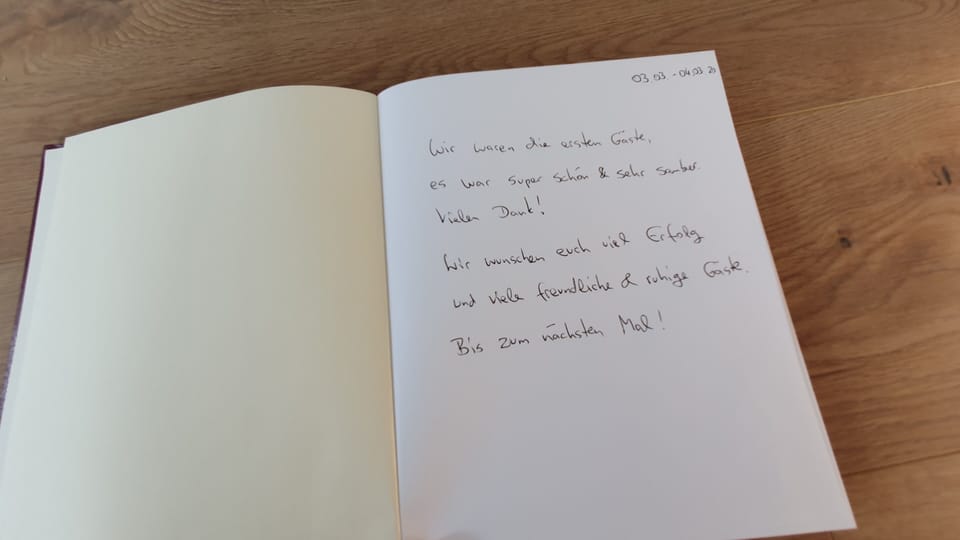 03.03. - 04.03.20
Wir waren die ersten Gäste,
es war super schön & sehr sauber.
Vielen Dank!
Wir wunschen euch viel Erfolg
und viele freundliche & ruhige Gäste.
Bis zum nächsten Mal!